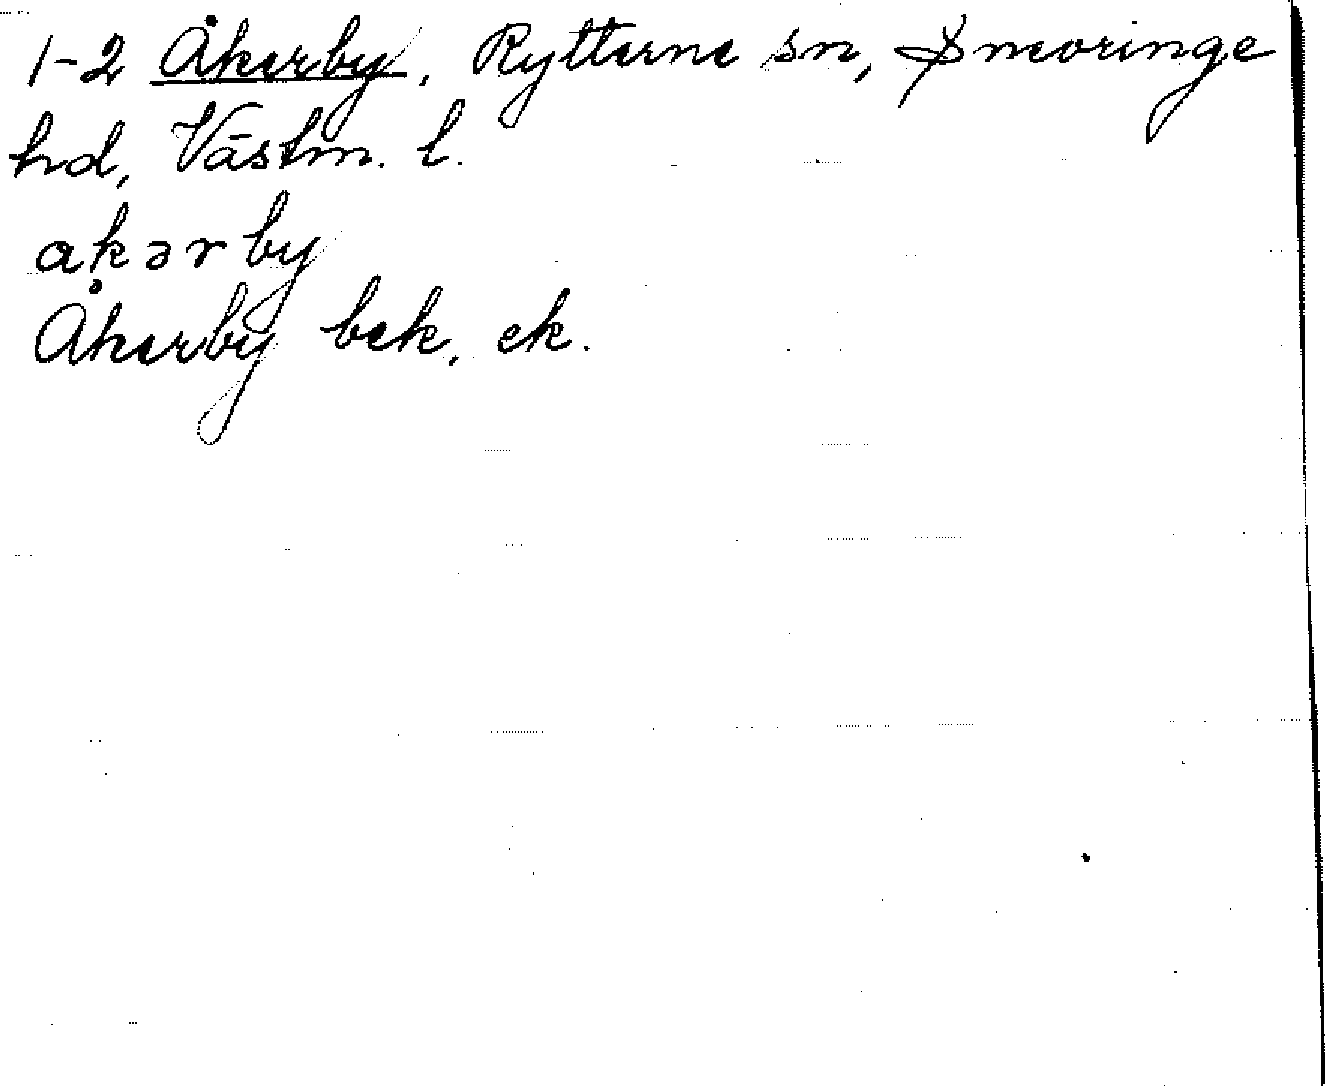 1-2 Åkerby, Rytterne sn, Snevringe
hd, Västm. l.
åkərby
Åkerby bek, ek.